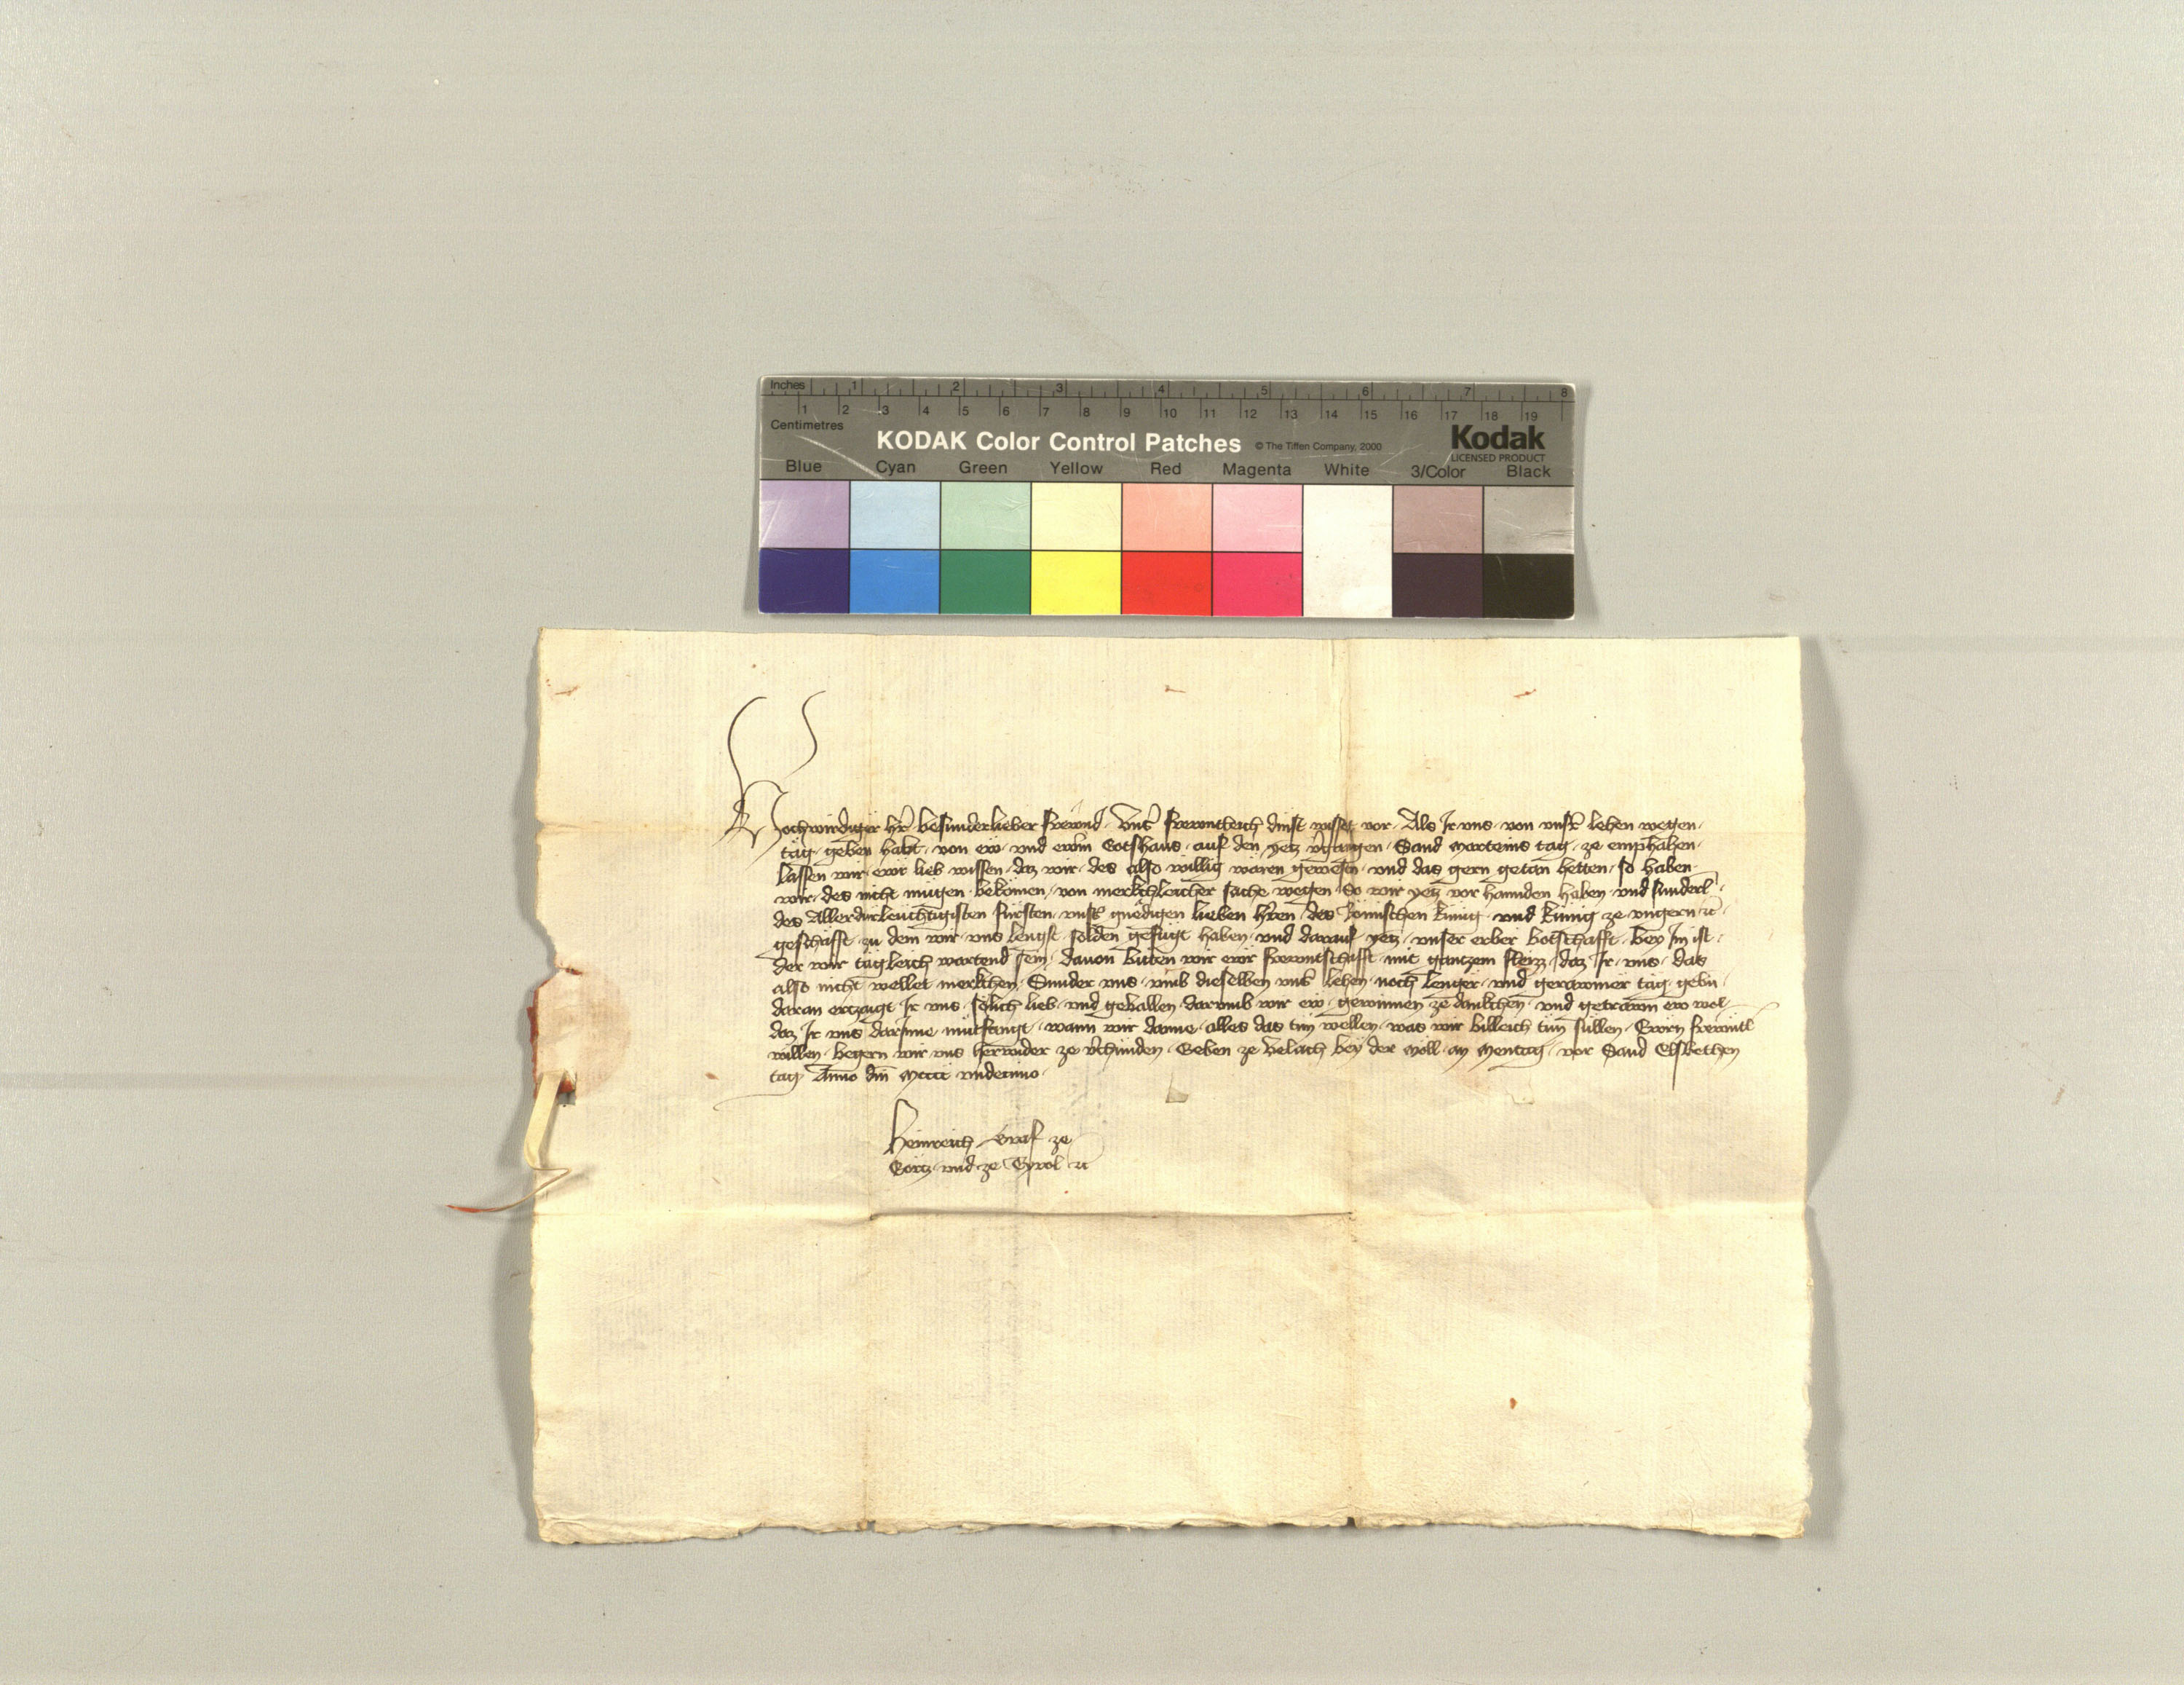 Inches 1 2 3 4 5 6 7 8
1 2 3 4 5 6 7 8 9 10 11 12 13 14 15 16 17 18 19
Centimetres
KODAK Color Control Patches © The Tiffen Company, 2000 Kodak
LICENSED PRODUCT
Blue Cyan Green Yellow Red Magenta White 3/Color Black
Hochwirdiger h͛r besunderlieber frewnd. Vns͛ frewntleich dinst wisset vor. Als Ir vns von vns͛n lehen wegen
tag geben habt von ew vnd ewrm Gotshaus auf den yetz v͛gangen Sand Marteins tag ze emphahen
Lassen wir ewr lieb wissen daz wir des also willig wären gewesen vnd das gern getan hetten so haben
wir des nicht mügen bekömen von merkchleicher sache wegen So wir yetz vor hannden haben vnd sunderl̄
des Allerdurleuchtigisten fürsten vns͛s gnedigen lieben h͛ren des Römischen Künig vnd Künig ze vngern ꝛc
geschäfft zu dem wir vns lengst solden gefügt haben vnd darauf yetz vnser erber botschafft bey Im ist
der wir tägleich wartend sein dauon bitten wir ewr frewntschafft mit gantzem fleizz daz Ir vns das
also nicht wellet merkchen Sunder vns vmb dieselben vns͛ lehen noch lenger vnd gerawmer täg gebn̄
daran ertzaigt Ir vns sölich lieb vnd geuallen darumb wir ew gewinnen ze dankchen vnd getrawn ew wol
daz Ir vns darInne nicht saumt wann wir danne alles das tün wellen was wir billeich tün süllen Ewrn frewntl̄
willen begern wir vns herwider ze v͛chünden Geben ze Velach bey der Möll an Mentag vor Sand Elsbethen
tag Anno dm̄ Mcccc vndecimo
Heinreich Graf ze
Görtz vnd ze Tyrol ꝛc